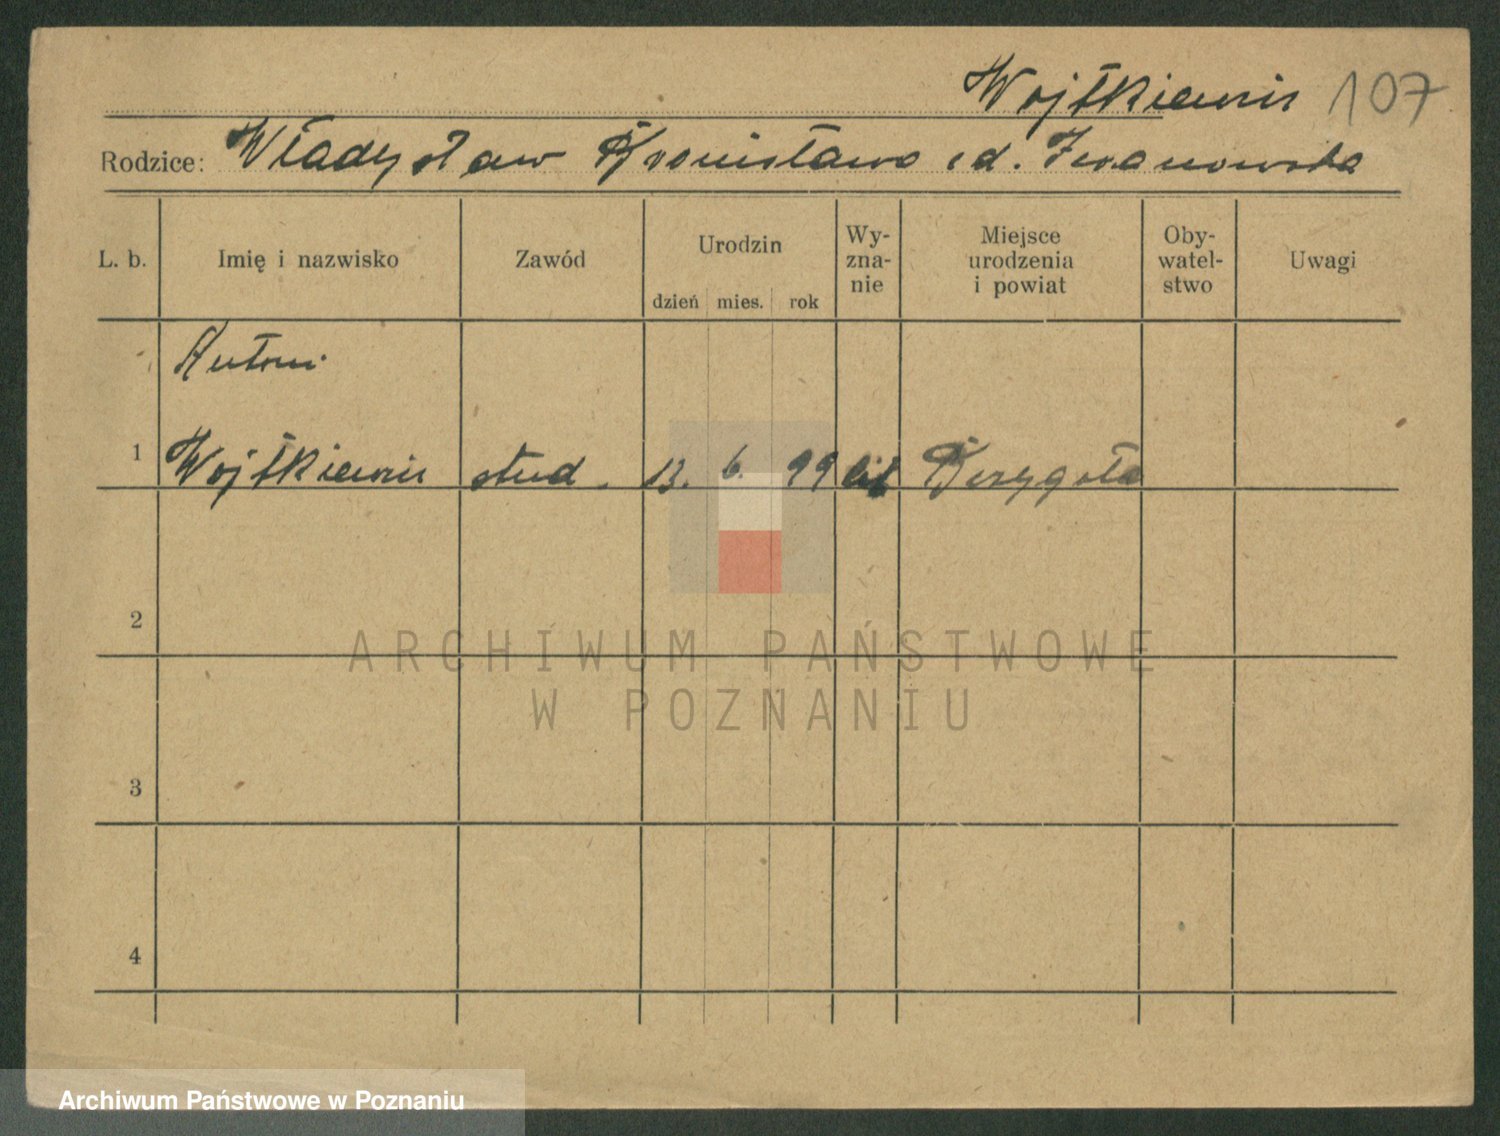 Wojtkiewicz 107
Rodzice: Władysław Bronisława z d. Iwanowska
L. b. Imię i nazwisko Zawód Urodzin dzień mies. rok Wy-zna-nie Miejsce urodzenia i powiat Oby-watel-stwo Uwagi
Antoni
1 Wojtkiewicz stud. 13. 6. 99
2
ARCHIWUM PAŃSTWOWE
W POZNANIU
3
4
Archiwum Państwowe w Poznaniu